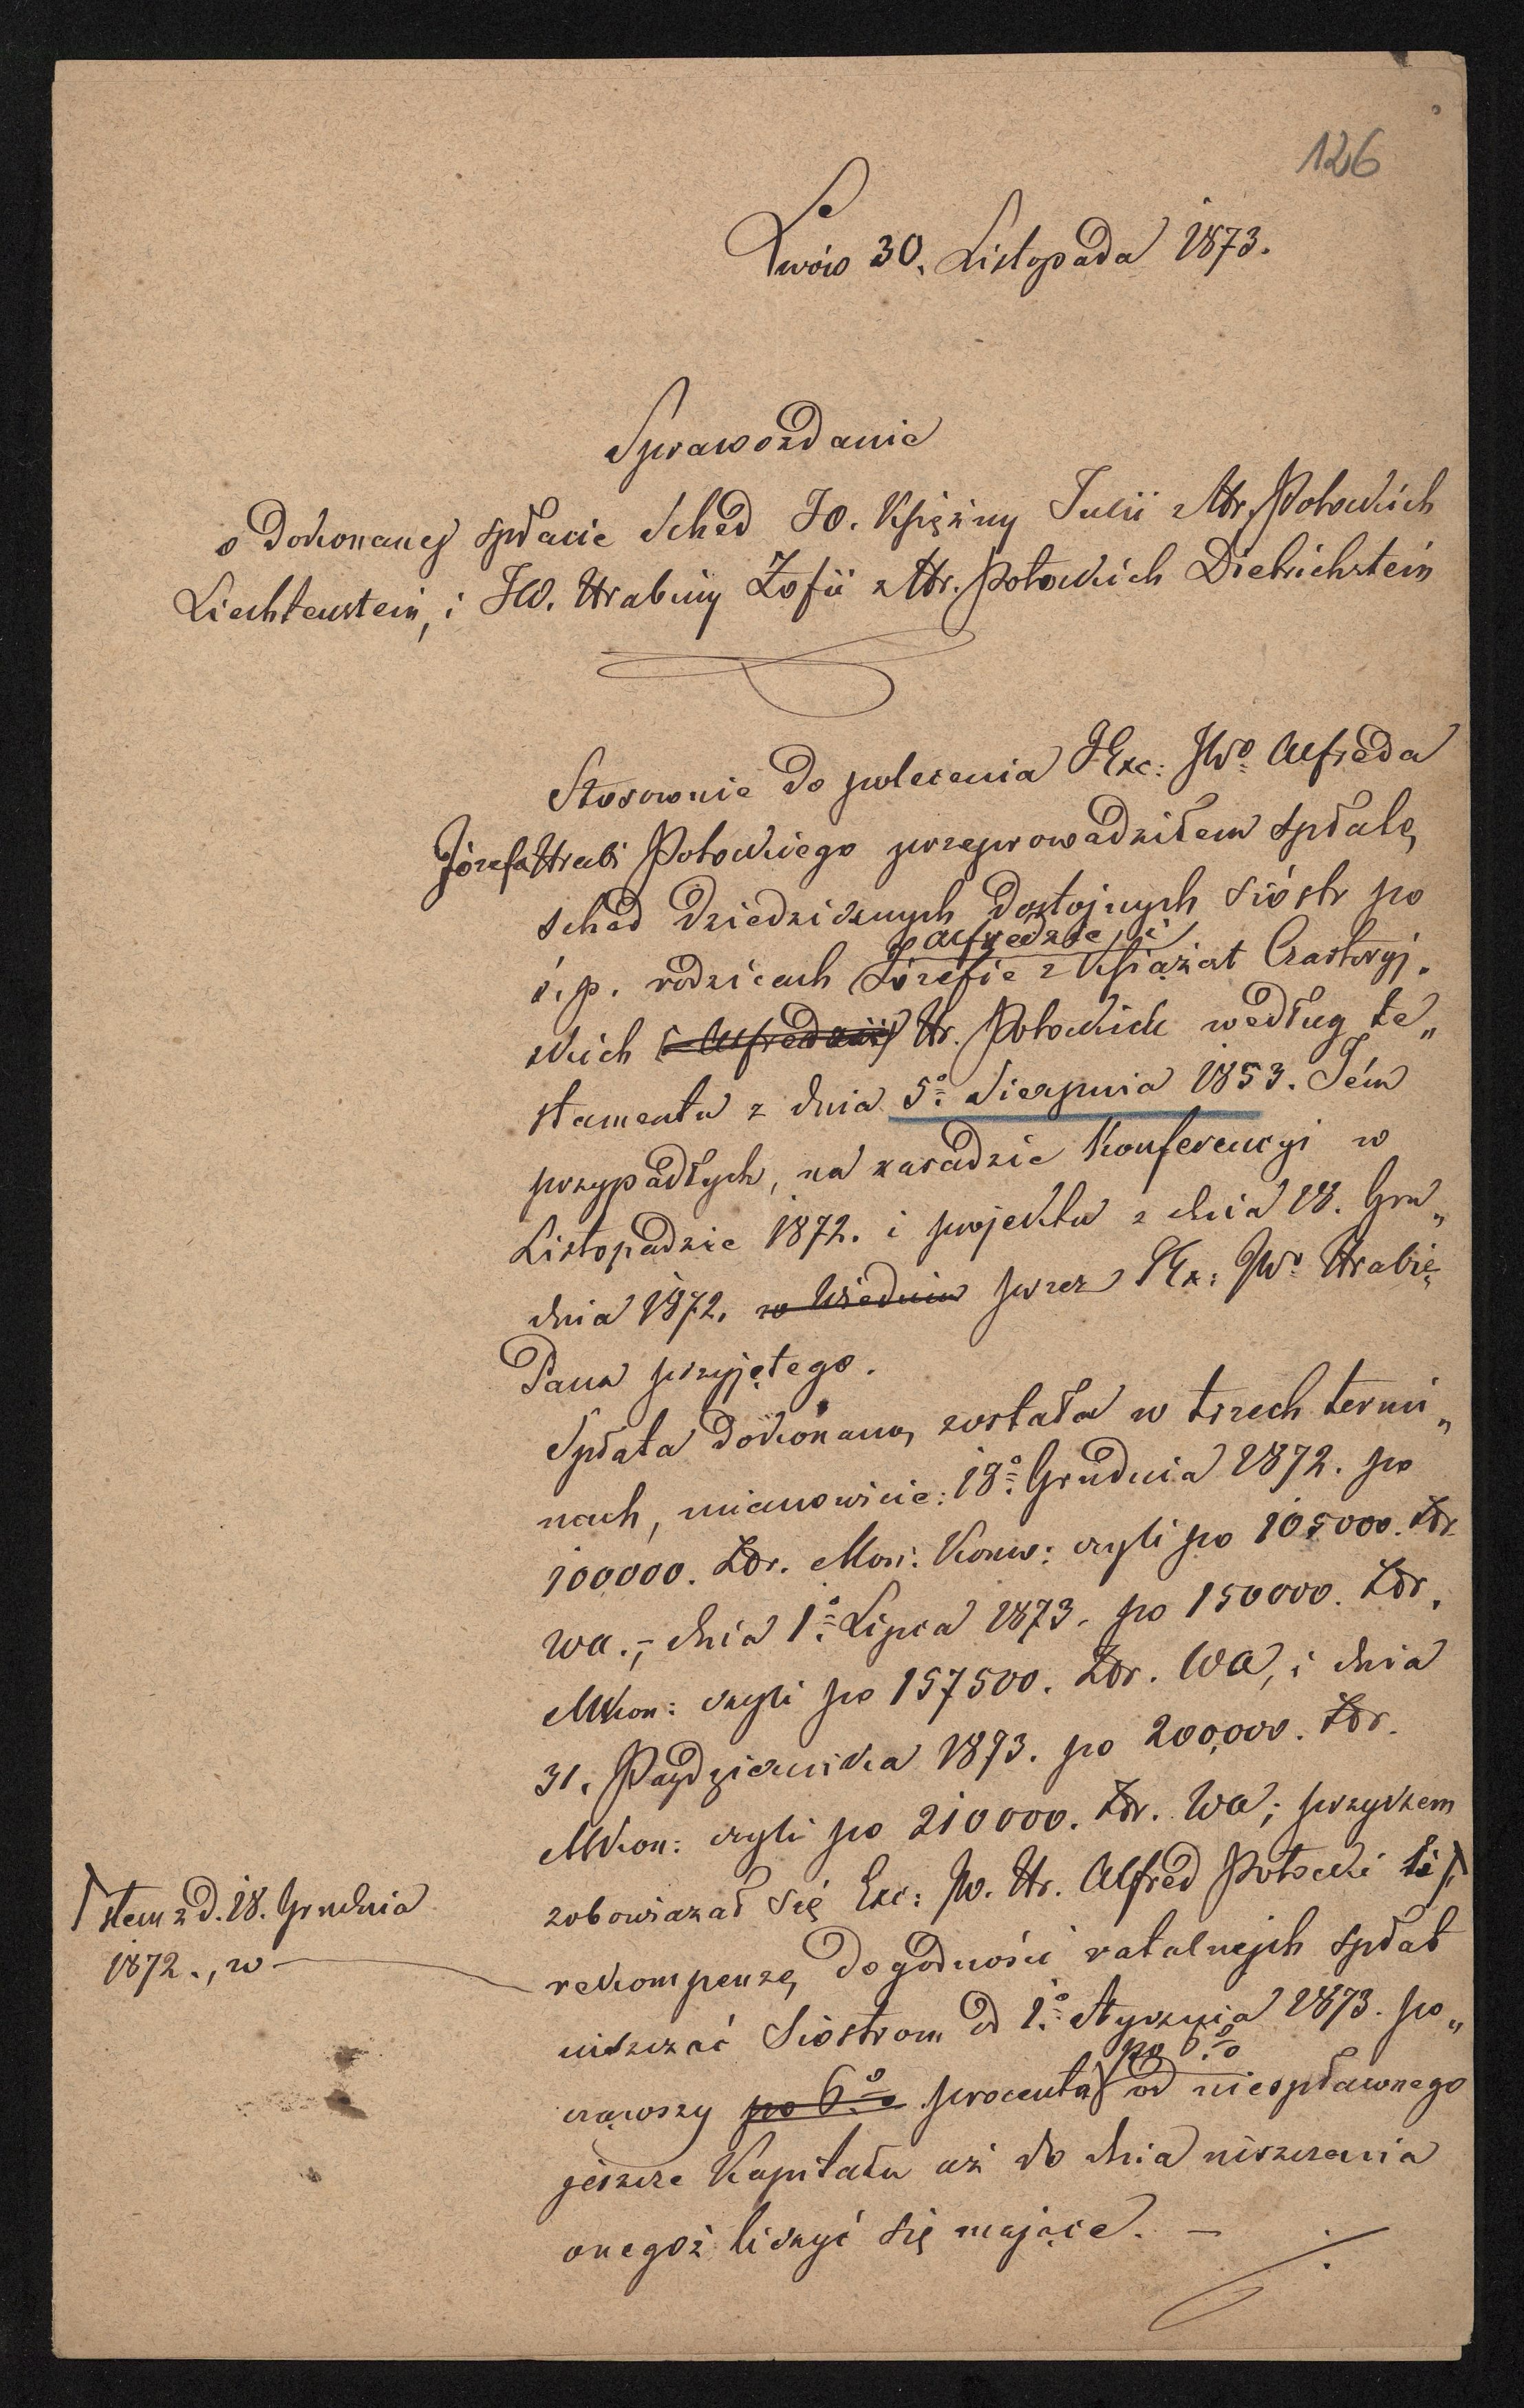 126
Lwów 30. Listopada 1873.
Sprawozdanie
o dokonanej spłacie Sched JO. Księżny Julii z Hr. Potockich
Liechtenstein, i JW. Hrabiny Zofii z Hr. Potockich Dietrichstein
Stosownie do polecenia JExc: JWº Alfreda
Józefa Hrabi Potockiego przeprowadziłem spłatę
sched dziedzicznych dostojnych sióstr po
Alfredzie i
ś. p. rodzicach Józefie z Książąt Czartoryj„
skich i Alfredzie Hr. Potockich według te„
stamentu z dnia 5º Sierpnia 1853. Tém
przypadłych, na zasadzie Konferencyi w
Listopadzie 1872. i projektu z dnia 18. Gru„
dnia 1872. w Wiedniu przez JEx: JWº Hrabię„
Pana przyjętego.
Spłata dokonaną została w trzech termi„
nach, mianowicie: 18º Grudnia 1872. po
100000. Złr. Mon: Konw: czyli po 105000. Złr.
WA.,– dnia 1º Lipca 1873. po 150000. Złr.
MKon: czyli po 157500. Złr. WA, i dnia
31. Października 1873. po 200,000. Złr.
MKon: czyli po 210000. Złr. WA; przyczem
zobowiązał się Exc: JW. Hr. Alfred Potocki li
stem z d. 18. Grudnia
1872., w
rekompenzę dogodności ratalnejch spłat
uiszczać Siostrom od 1º Stycznia 1873. po„
po 6º/o
cząwszy po 6º/o procenta od niespławnego
jeszcze Kapitału aż do dnia uiszczenia
onegoż liczyć się mające. –
./.